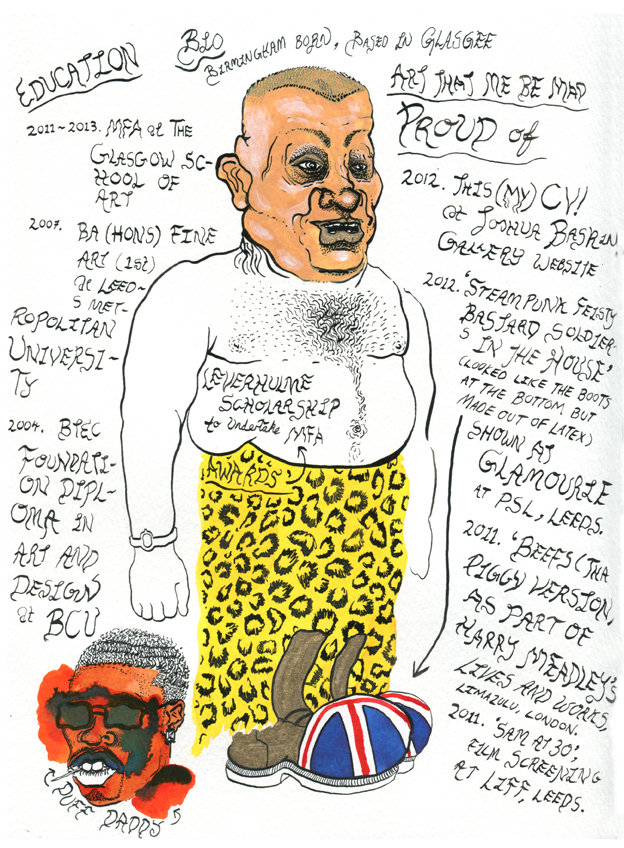 BIO
BIRMINGHAM BORN, BASED IN GLASGEE
EDUCATION
2011~2013. MFA at THE
GLASGOW SC-
HOOL OF
ART
2007. BA (HONS) FINE
ART (1st)
at LEED-
S MET-
ROPOLITAN
UNIVERSI-
TY
2004. BTEC
FOUNDATI-
ON DIPL-
OMA IN
ART AND
DESIGN
at BCU
PUFF DADDY
LEVERHULME
SCHOLARSHIP
to undertake MFA
AWARDS
ART THAT ME BE MAD
PROUD of
2012. THIS (MY) CV!
at JOSHUA BASKIN
GALLERY WEBSITE
2012. 'STEAMPUNK FEISTY
BASTARD SOLDIER
S IN THE HOUSE'
(LOOKED LIKE THE BOOTS
AT THE BOTTOM BUT
MADE OUT OF LATEX)
SHOWN AT
GLAMOURIE
AT PSL, LEEDS.
2011. 'BEEFS (THA
PIGGY VERSION,
AS PART OF
HARRY MEADLEY'S
LIVES AND WORKS,
LIMAZULU, LONDON.
2011. 'SAM AT 30'
FILM SCREENING
AT LIFF, LEEDS.